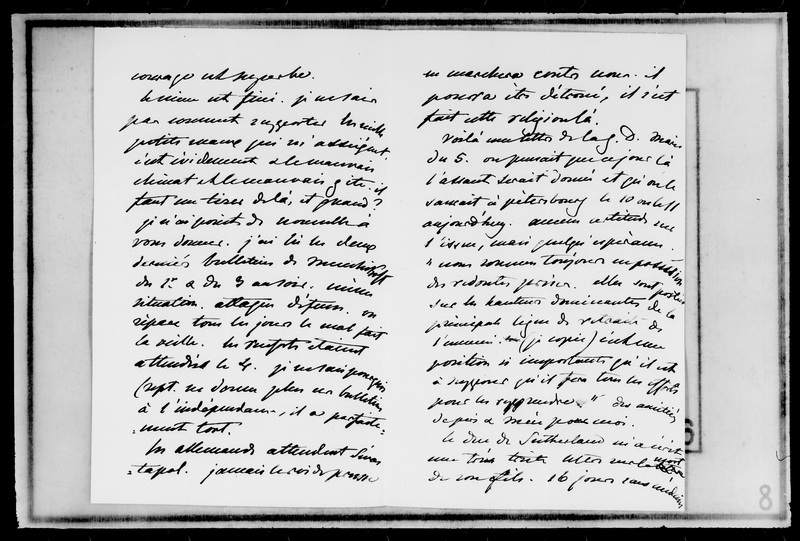 courage est superbe.
le mien est fini. je ne sais
par comment supporter les mille
petits maux qui m'assiègent.
c'est évidemment le mauvais
climat et le mauvais gîte. il
faut me tirer de là, et quand?
je n'ai point de nouvelle à
vous donner. j'ai lu les deux
derniers bulletins de Menchikoff
du 1er a du 3 au soir. même
situation. attaque défense. on
répare tous les jours le mal fait
la veille. les renforts étaient
attendus le 4. je ne sais pourquoi
(rept. ne donne plus ses bulletins
à l'indépendance, il a parfaite-
ment tort.
les allemands attendent Sévas
tapol. jamais le roi de prusse
ne marchera contre nous. il
pourra être détroné, il s'est
fait cette religion là.
Voilà une lettre de la g. D. Marie
du 5. on pensait que ce jour là
l'assaut serait donné et qu'on le
saurait à pétersbourg le 10 ou le 11
aujourd'huy. aucune certitude sur
l'issue, mais quelqu'espérance.
"nous sommes toujours en possession
des redoutes prises. elles sont postées
sur les hauteurs dominantes de la
principale ligne de retraite de
l'ennemi. (je copie) c'est une
position si importante qu'il est
à supposer qu'il fera tous les efforts
pour les reprendre." des amitiés
depuis a
le Duc de Sutherland m'a écrit
une très triste lettre sur la mort
de son fils. 16 jours sans médecin
8